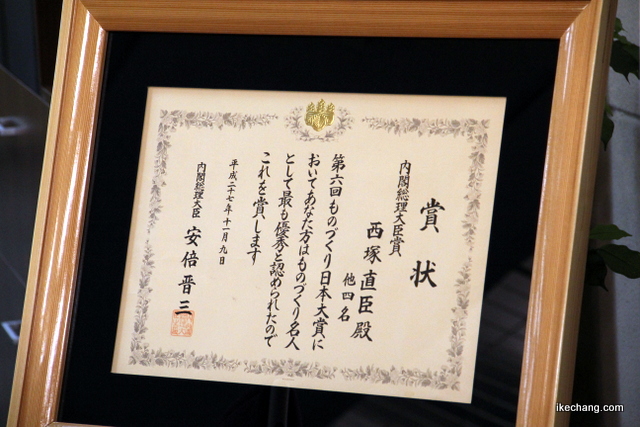 賞状
内閣総理大臣賞
西塚直臣殿
他四名
第六回ものづくり日本大賞に
おいてあなた方はものづくり名人
として最も優秀と認められたので
これを賞します
平成二十七年十一月九日
内閣総理大臣 安倍晋三
ikechang.com